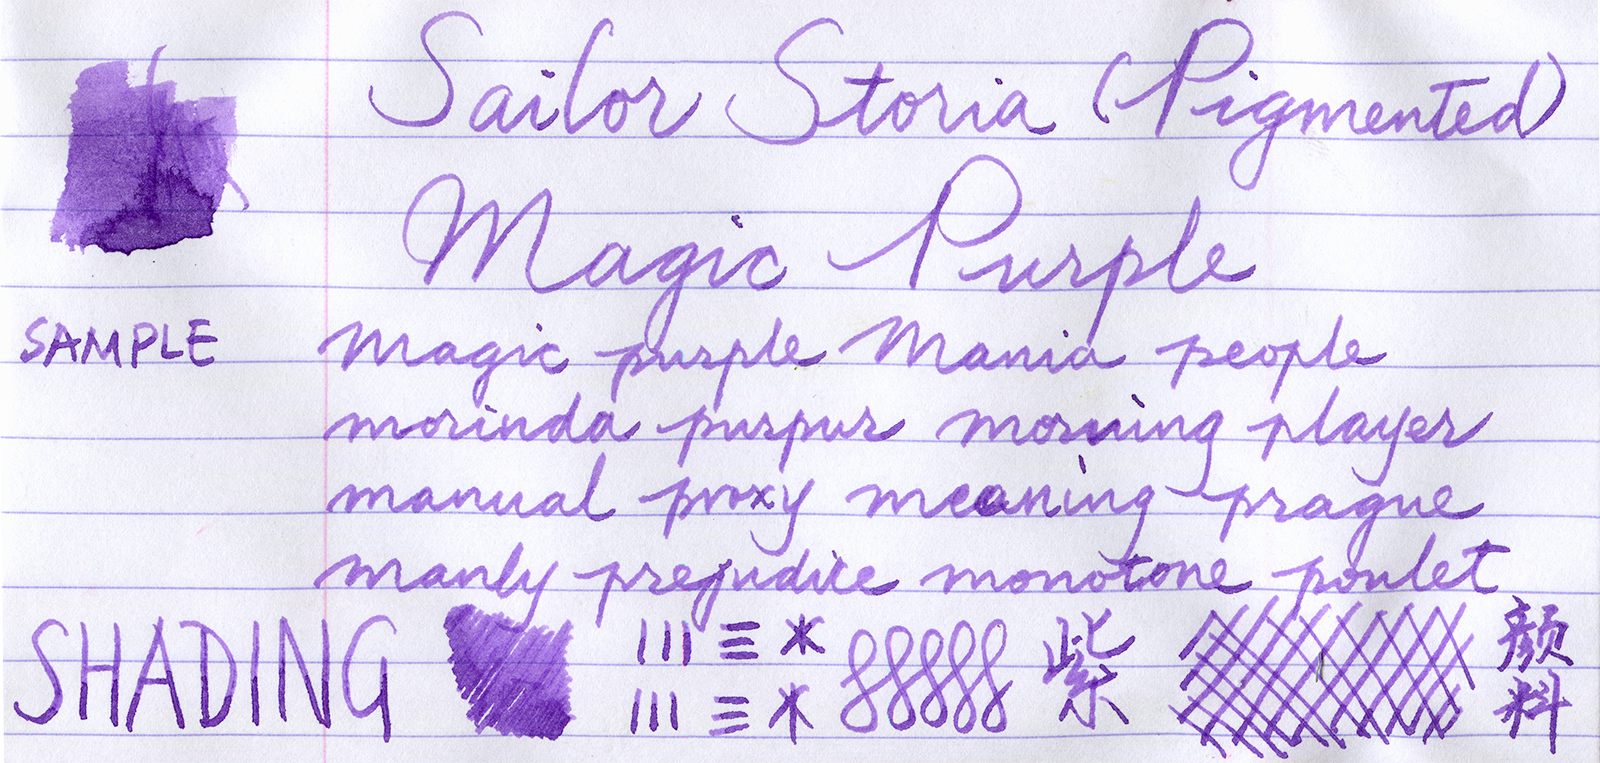 Sailor Storia (Pigmented)
Magic Purple
SAMPLE
Magic purple Mania people
morinda purpur morning player
manual proxy meaning prague
manly prejudice monotone poulet
SHADING
紫
颜料